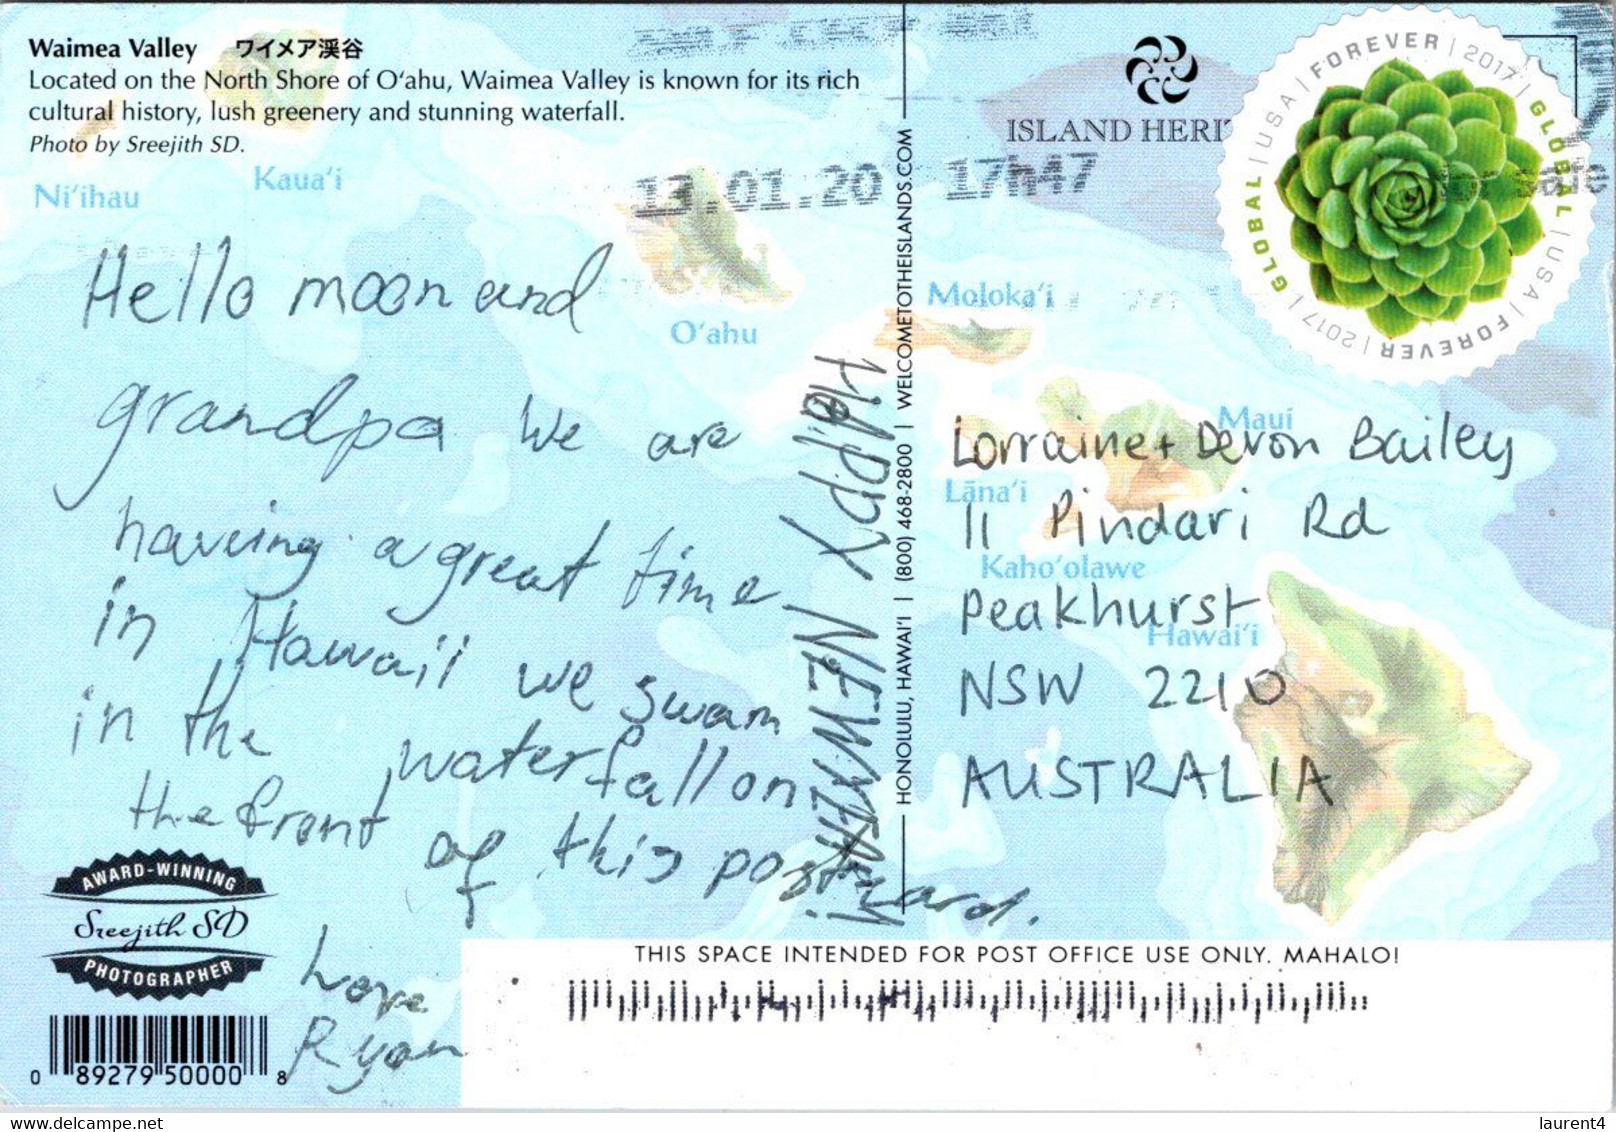 Waimea Valley ワイメア渓谷
Located on the North Shore of O‘ahu, Waimea Valley is known for its rich
cultural history, lush greenery and stunning waterfall.
Photo by Sreejith SD.
Ni‘ihau
Kaua‘i
O‘ahu
Moloka‘i
Maui
Lāna‘i
Kaho‘olawe
Hawai‘i
13.01.20 17h47
ISLAND HERIT
GLOBAL | USA | FOREVER | 2017 | GLOBAL | USA | FOREVER | 2017 |
Hello moon and
grandpa we are
having a great time
in Hawaii we swam
in the waterfall on
the front of this postcard.
Love
Ryan
HAPPY NEW YEAR!
HONOLULU, HAWAI‘I | (800) 468-2800 | WELCOMETOTHEISLANDS.COM
Lorraine + Devon Bailey
11 Pindari Rd
Peakhurst
NSW 2210
AUSTRALIA
AWARD-WINNING
Sreejith SD
PHOTOGRAPHER
0 89279 50000 8
THIS SPACE INTENDED FOR POST OFFICE USE ONLY. MAHALO!
delcampe.net
laurent4